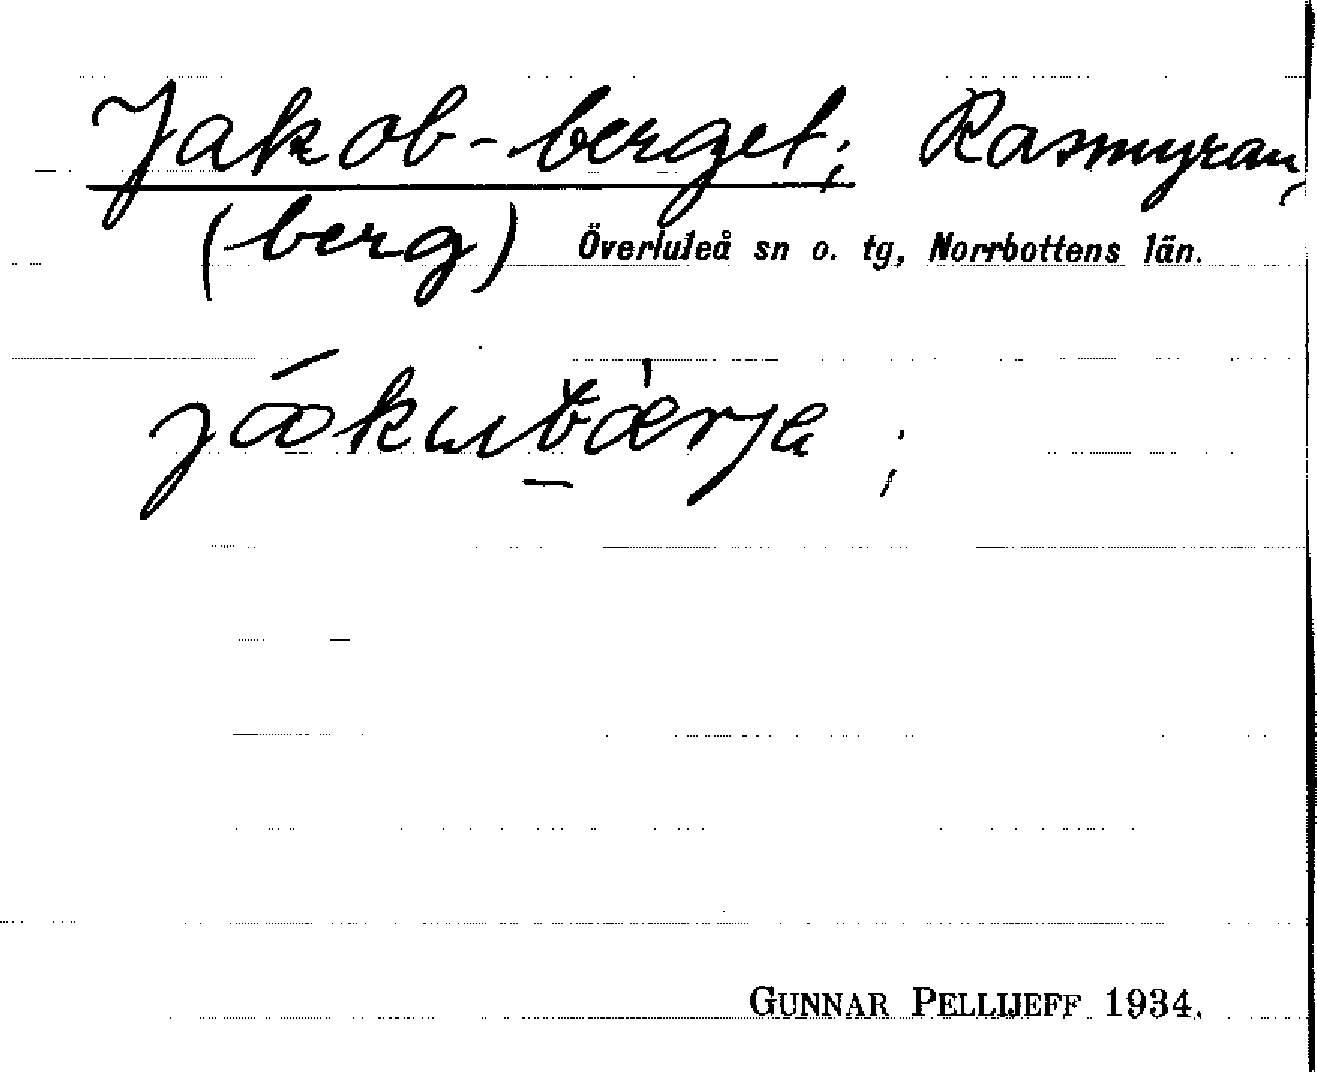 Jakob-berget; Rasmyran,
(berg) Överluleå sn o. tg, Norrbottens län.
GUNNAR PELLIJEFF 1934.